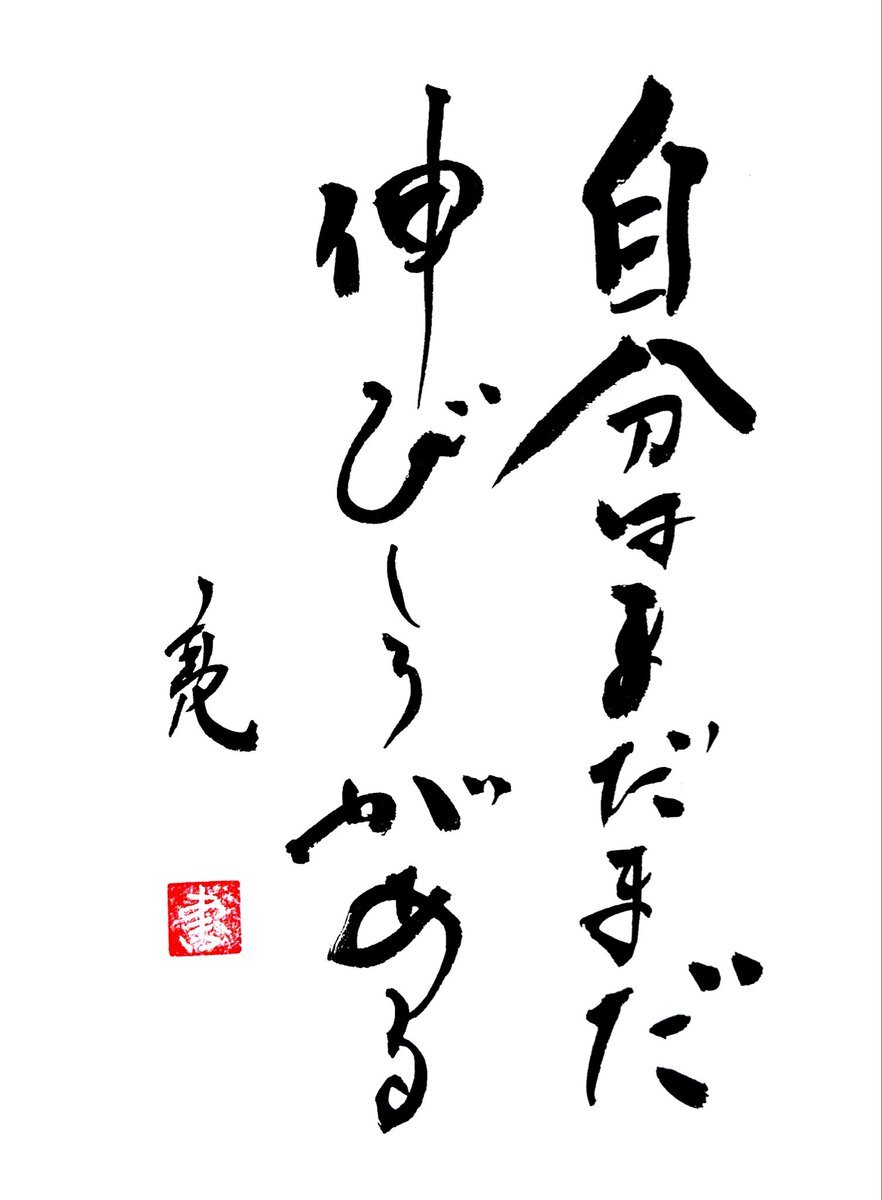 自分はまだまだ
伸びしろがある
亮